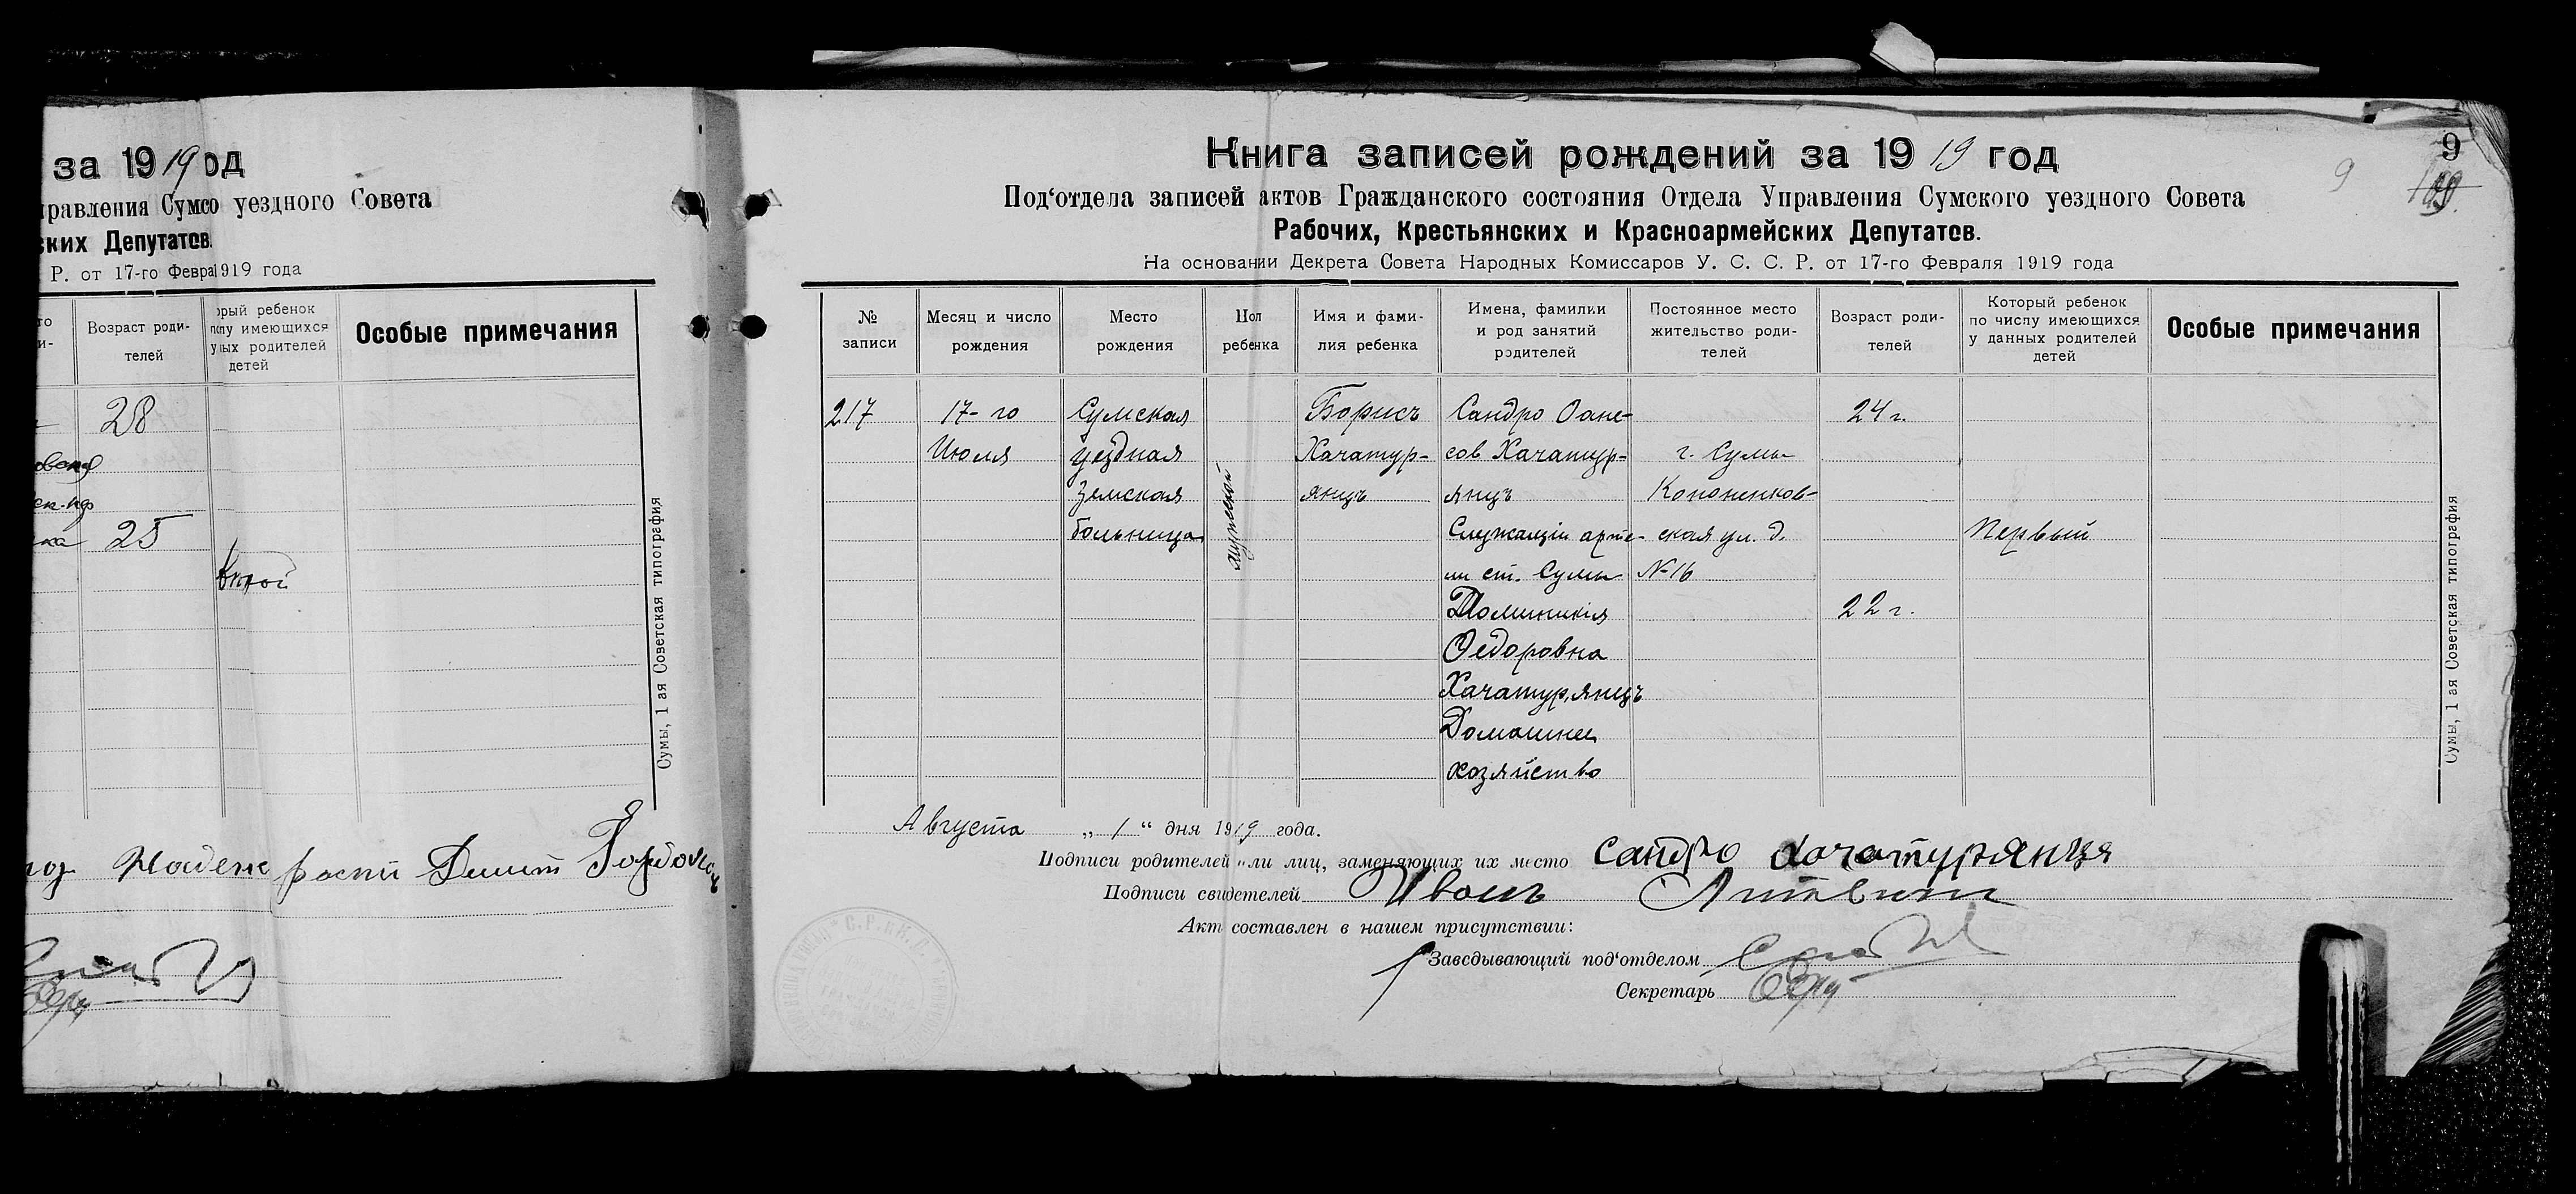 за 1919 од
правления Сумсо уездного Совета
ских Депутатов.
Р. от 17-го Февра 1919 года
Возраст роди-
телей
рый ребенок
имеющихся
родителей
детей
Особые примечания
28
25
Сумы, 1 ая Советская типография
9
9
Книга записей рождений за 1919 год
Под‘отдела записей актов Гражданского состояния Отдела Управления Сумского уездного Совета
Рабочих, Крестьянских и Красноармейских Депутатов.
На основании Декрета Совета Народных Комиссаров У. С. С. Р. от 17-го Февраля 1919 года
№
записи
Месяц и число
рождения
Место
рождения
Пол
ребенка
Имя и фами-
лия ребенка
Имена, фамилии
и род занятий
родителей
Постоянное место
жительство роди-
телей
Возраст роди-
телей
Который ребенок
по числу имеющихся
у данных родителей
детей
Особые примечания
217
17-го
Июля
Сумская
уездная
земская
больница
мужской
Борисъ
Хачатур-
янцъ
Сандро Оане-
сов Хачатур-
янцъ
Служащiй арте-
ли ст. Сумы
Доминикiя
Федоровна
Хачатурянцъ
Домашнее
хозяйство
г. Сумы
Кононенков-
ская ул. д.
№ 16
24 г.
22 г.
Первый
Сумы, 1 ая Советская типография
Августа „ 1 “ дня 1919 года.
Подписи родителей или лиц, заменяющих их место Сандро Хачатурянця
Подписи свидетелей Иванъ Литвин
Акт составлен в нашем присутствии:
Заведывающий под‘отделом
Секретарь